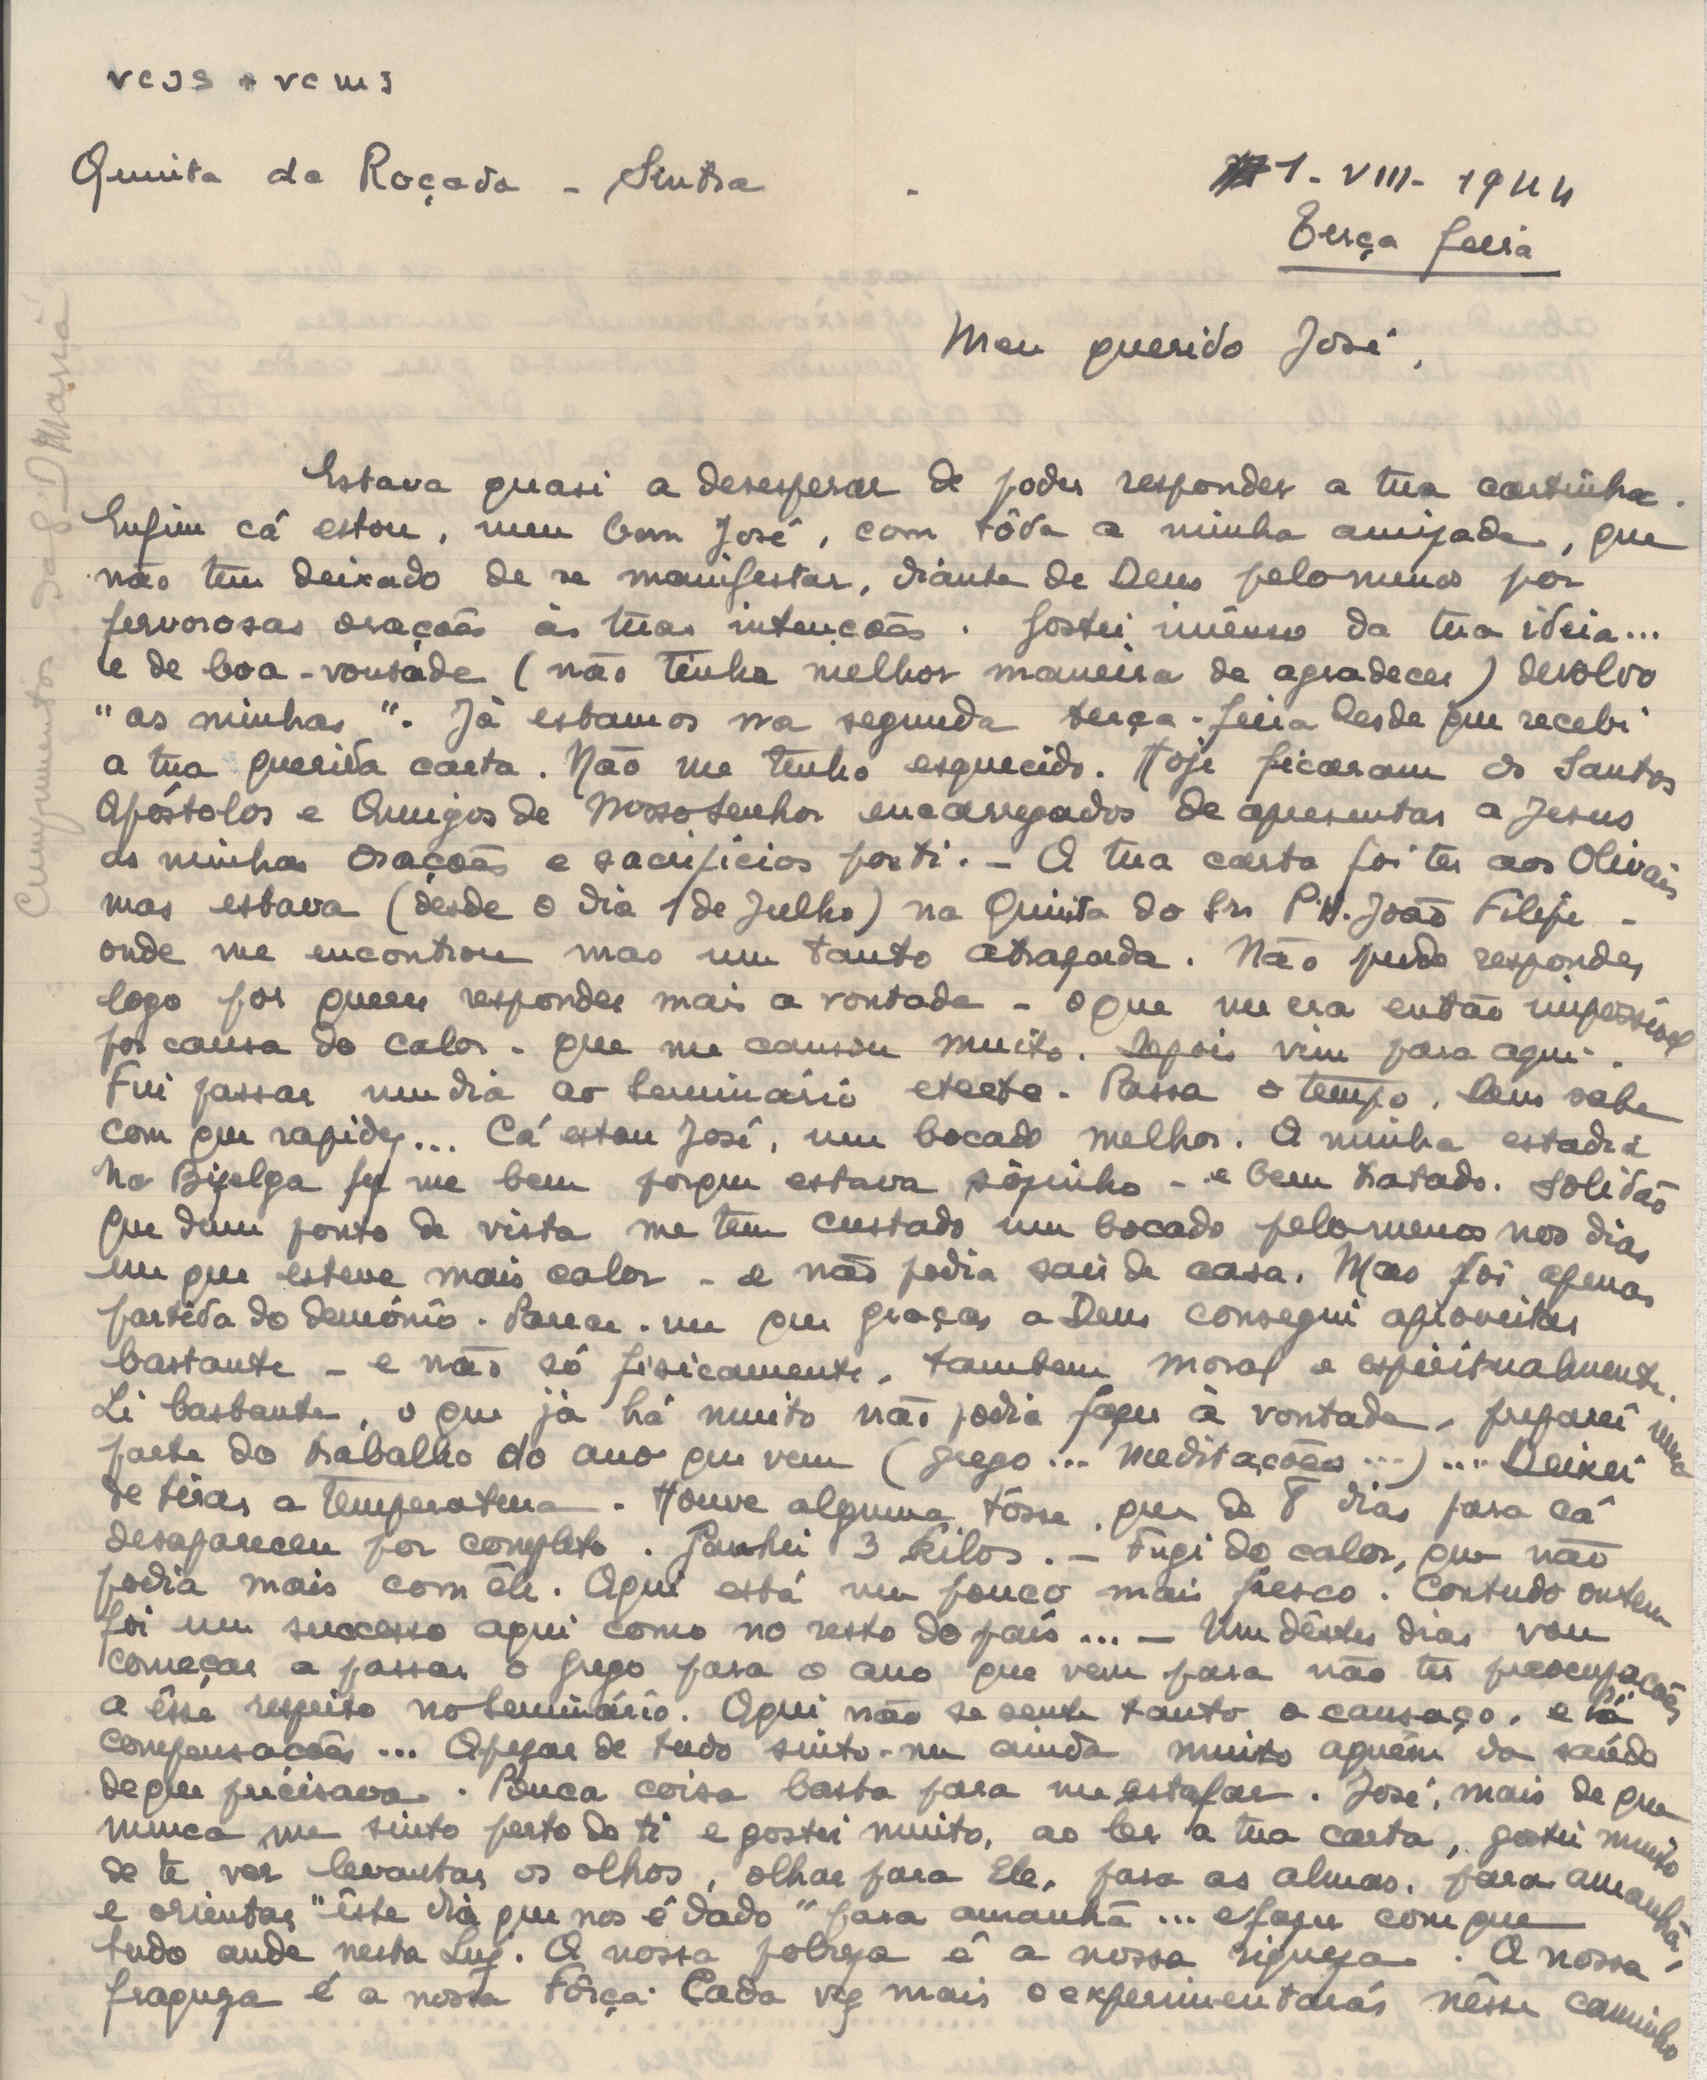 VCJS + VCMJ
Quinta da Roçada - Sintra
1-VIII-1944
Terça feira
Meu querido José,
Estava quasi a desesperar de poder responder a tua cartinha.
Enfim cá estou, meu bom José, com tôda a minha amizade, que
não tem deixado de se manifestar, diante de Deus pelo menos por
fervorosas orações às tuas intenções. Gostei imenso da tua ideia...
e de boa-vontade (não tinha melhor maneira de agradecer) devolvo
"as minhas". Já estamos na segunda terça-feira desde que recebi
a tua querida carta. Não me tenho esquecido. Hoje ficaram os Santos
Apóstolos e Amigos de Nosso Senhor encarregados de apresentar a Jesus
as minhas orações e sacrifícios por ti. - A tua carta foi ter aos Olivais
mas estava (desde o dia 1 de Julho) na Quinta do Sr. P. João Filipe -
onde me encontrou mas um tanto atrazada. Não pude responder
logo por querer responder mais a vontade - o que me era então impossível
por causa do calor - que me cansou muito. Depois vim para aqui.
Fui passar um dia ao Seminário etc etc. Passa o tempo, bem sabe
com que rapidez... Cá estou José, um bocado melhor. A minha estadia
na Bizelga fez me bem porque estava sòzinho - e bem tratado. Solidão
que dum ponto de vista me tem custado um bocado pelo menos nos dias
em que esteve mais calor - e não podia sair de casa. Mas foi apenas
partida do demónio. Parece-me que graças a Deus consegui aproveitar
bastante - e não só fisicamente, tambem moral e espiritualmente.
Li bastante, o que já há muito não podia fazer à vontade, preparei uma
parte do trabalho do ano que vem (grego... meditações...).... Deixei
de tirar a temperatura. Houve alguma tôsse que de 8 dias para cá
desapareceu por completo. Ganhei 3 kilos. - Fugi do calor, que não
podia mais com êle. Aqui está um pouco mais fresco. Contudo ontem
foi um successo aqui como no resto do país... - Um dêstes dias vou
começar a passar o grego para o ano que vem para não ter preocupações
a êsse respeito no Seminário. Aqui não se sente tanto o cansaço, e há
compensações... Apezar de tudo sinto-me ainda muito aquém da saúde
de que precisava. Pouca coisa basta para me estafar. José, mais de que
nunca me sinto perto de ti e gostei muito, ao ler a tua carta, gostei muito
de te ver levantar os olhos, olhar para Ele, para as almas, para amanhã,
e orientar "êste dia que nos é dado" para amanhã... e fazer com que
tudo ande nesta Luz. A nossa pobreza é a nossa riqueza. A nossa
fraqueza é a nossa Fôrça. Cada vez mais o experimentarás nêsse caminho
Cumprimentos da S. D. Maria